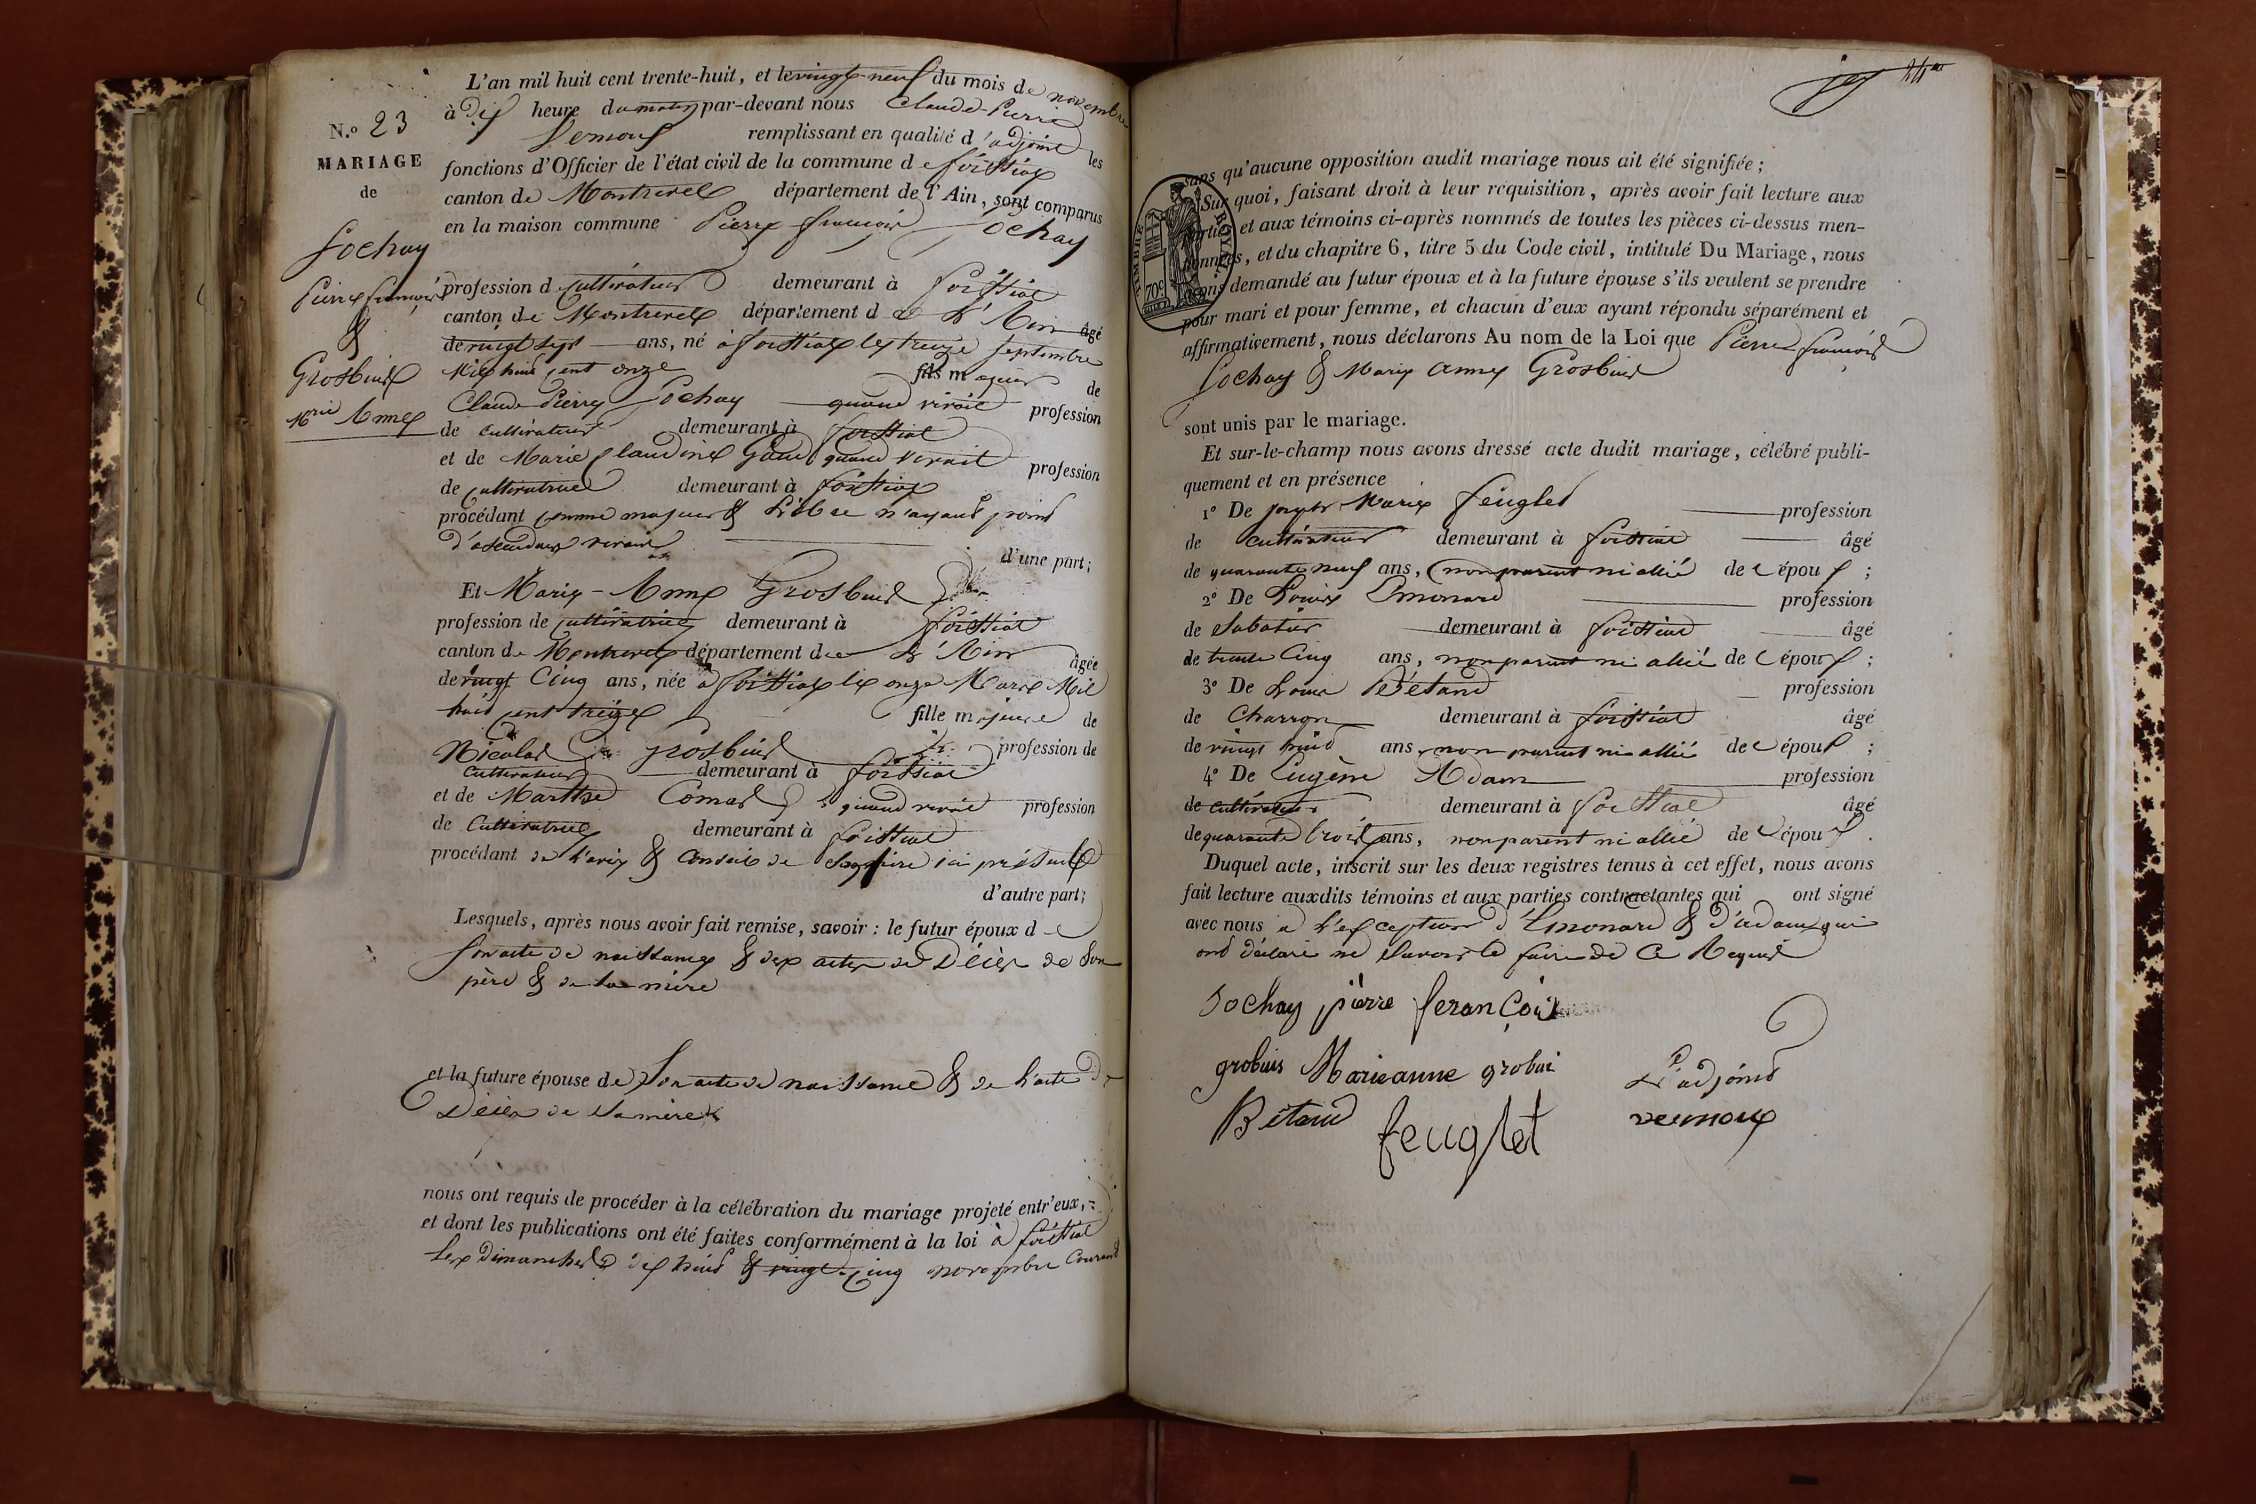 N.º 23
MARIAGE
de
Sochay
Pierre françois
&
Grosbuis
Mrie Anne
L'an mil huit cent trente-huit, et le vingt-neuf du mois de novembre
à dix heure du matin par-devant nous Claude-Pierre
remplissant en qualité d'adjoint les
fonctions d'Officier de l'état civil de la commune de foissiat
canton de Montrevel département de l'Ain, sont comparus
en la maison commune Pierre françois Sochay
profession de cultivateur demeurant à foissiat
canton de Montrevel département de L'Ain âgé
de vingt sept ans, né à foissiat le treize septembre
Mil huit cent onze fils majeur de
Claude Pierre Sochay quand vivait profession
de cultivateur demeurant à foissiat
et de Marie Claudine quand vivait profession
de cultivatrice demeurant à foissiat
procédant comme majeur & Libre n'ayant point
d'asendans vivans
d'une part;
Et Marie-Anne Grosbuis
profession de cultivatrice demeurant à foissiat
canton de Montrevel département de L'Ain âgée
de vingt Cinq ans, née à foissiat le onze Mars Mil
huit cent treize fille majeure de
Nicolas Grosbuis profession de
cultivateur demeurant à foissiat
et de Marthe Comas quand vivait profession
de Cultivatrice demeurant à foissiat
procédant de L'avis & Conseil de Son père ici présent
d'autre part;
Lesquels, après nous avoir fait remise, savoir : le futur époux de
son acte de naissance & des actes de Décès de Son
père & de sa mère
et la future épouse de Son acte de naissance & de L'acte de
Décès de Sa mère
nous ont requis de procéder à la célébration du mariage projeté entr'eux,
et dont les publications ont été faites conformément à la loi à foissiat
Les Dimanches dix huit & vingt-cinq novembre Courant
24
sans qu'aucune opposition audit mariage nous ait été signifiée ;
Sur quoi, faisant droit à leur réquisition, après avoir fait lecture aux
parties et aux témoins ci-après nommés de toutes les pièces ci-dessus men-
tionnées, et du chapitre 6, titre 5 du Code civil, intitulé Du Mariage, nous
avons demandé au futur époux et à la future épouse s'ils veulent se prendre
pour mari et pour femme, et chacun d'eux ayant répondu séparément et
affirmativement, nous déclarons Au nom de la Loi que Pierre françois
Sochay & Marie Anne Grosbuis
sont unis par le mariage.
Et sur-le-champ nous avons dressé acte dudit mariage, célébré publi-
quement et en présence
1º De Joseph Marie feuglet profession
de cultivateur demeurant à foissiat âgé
de quarante neuf ans, non parent ni allié des époux ;
2º De Louis Emonard profession
de Sabotier demeurant à foissiat âgé
de trente Cinq ans, non parent ni allié des époux ;
3º De Louis Bétand profession
de Charron demeurant à foissiat âgé
de vingt huit ans, non parent ni allié des époux ;
4º De Eugène Adam profession
de cultivateur demeurant à foissiat âgé
de quarante trois ans, non parent ni allié des époux.
Duquel acte, inscrit sur les deux registres tenus à cet effet, nous avons
fait lecture auxdits témoins et aux parties contractantes qui ont signé
avec nous à L'exception d'Emonard & d'adam qui
ont déclaré ne Savoir le faire de Ce Requis
Sochay pierre feranÇois
grobuis Marieanne grobui
L'adjoint
Bétand feuglet vernoux
TIMBRE ROYAL
70c